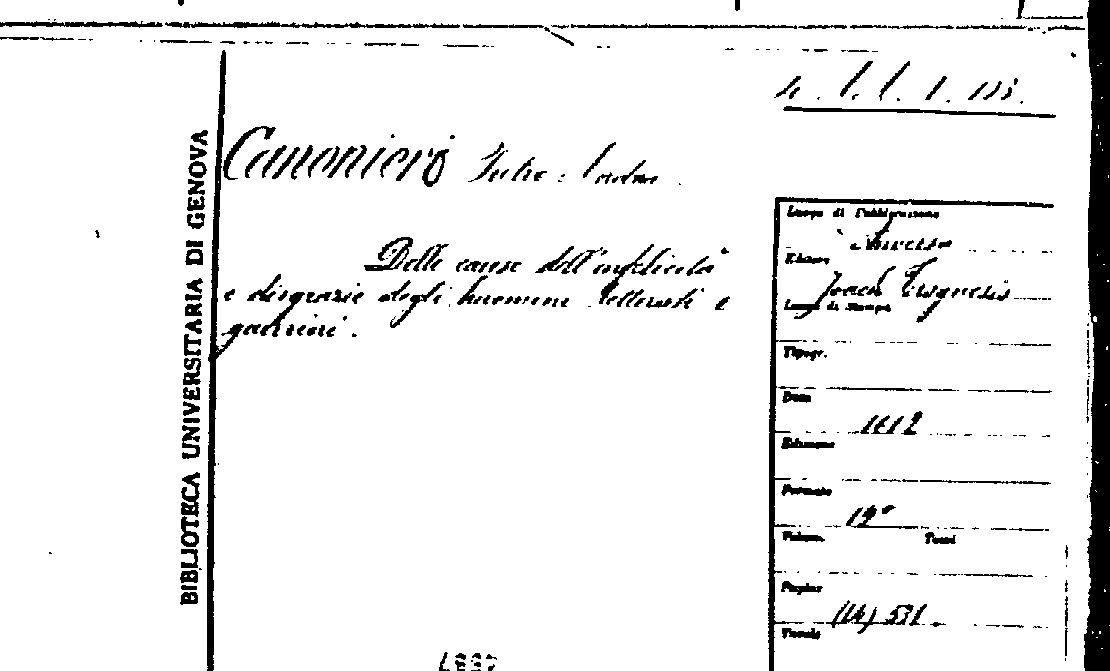 BIBLIOTECA UNIVERSITARIA DI GENOVA
Canoniero
Delle cause dell'infelicità
e disgrazie degli huomini letterati e
guerrieri.
Luogo di Pubblicazione
Anversa
Editore
Joach Trognesio
Luogo di Stampa
Tipogr.
Data
1612
Edizione
Formato
12°
Volum. Tomi
Pagine
(16) 531.
Tavole